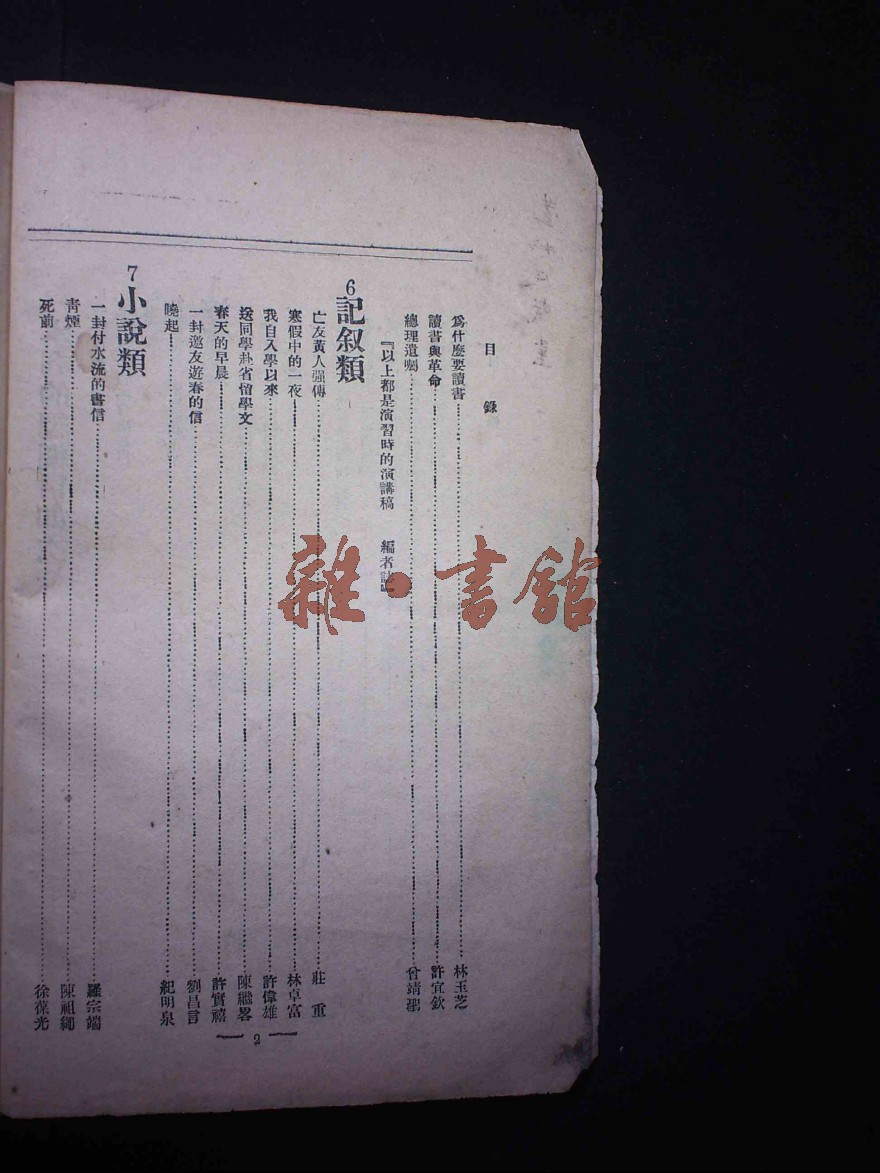 目錄
爲什麼要讀書 林玉芝
讀書與革命 許宜欽
總理遺囑 曾靖
『以上都是演習時的演講稿 編者誌』
6 記叙類
亡友黃人强傳 莊重
寒假中的一夜 林卓富
我自入學以來 許偉雄
送同學赴省留學文 陳繼畧
春天的早晨 許實禧
一封邀友遊春的信 劉昌言
曉起 紀明泉
7 小說類
一封付水流的書信 羅宗端
青煙 陳祖繩
死前 徐葆光
2
雜·書館